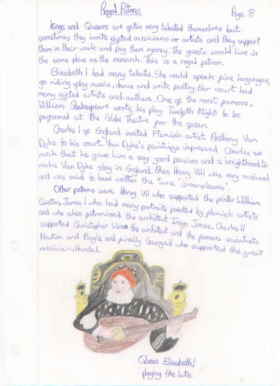 Royal Patrons
Page 8
Kings and Queens are often very talented themselves but
sometimes they invite gifted musicians or artists and they support
them in their work and pay them money. The guests would live in
the same place as the monarch. This is a royal patron.
Elizabeth I had many talents. She could speak five languages,
go riding, play music, dance and write poetry. Her court had
many gifted artists and authors. One of the most famous,
William Shakespeare wrote his play Twelfth Night to be
performed at the Globe Theatre for the queen.
Charles I of England invited Flemish artist Anthony Van
Dyke to his court. Van Dyke's paintings impressed Charles so
much that he gave him a very good pension and a knighthood to
make Van Dyke stay in England. Then Henry VIII who was musical
and was said to have written the tune 'Greensleeves'.
Other patrons were Henry VII who supported the printer William
Caxton, James I who had many portraits painted by flemish artists
and who also patronised the architect Inigo Jones, Charles II
supported Christopher Wren the architect and the famous scientists
Newton and Boyle and finally George I who supported the great
musician Handel.
Queen Elizabeth I
playing the lute